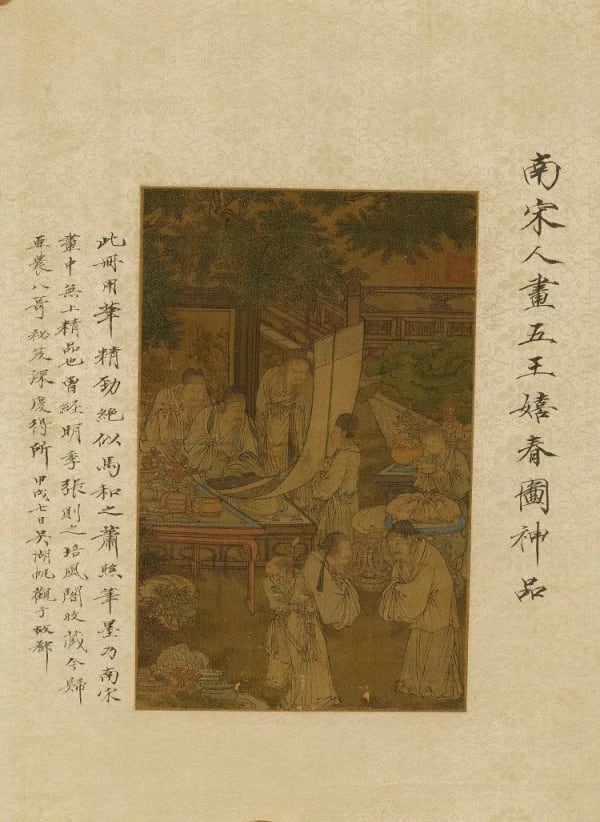 南宋人畫五王嬉春圖神品
此冊用筆精勁絕似馬和之蕭照筆墨乃南宋
畫中無上精品也曾經明季張則之培風閣收藏今歸
亞農八哥秘笈深慶得所 甲戌七日吳湖帆觀于故都